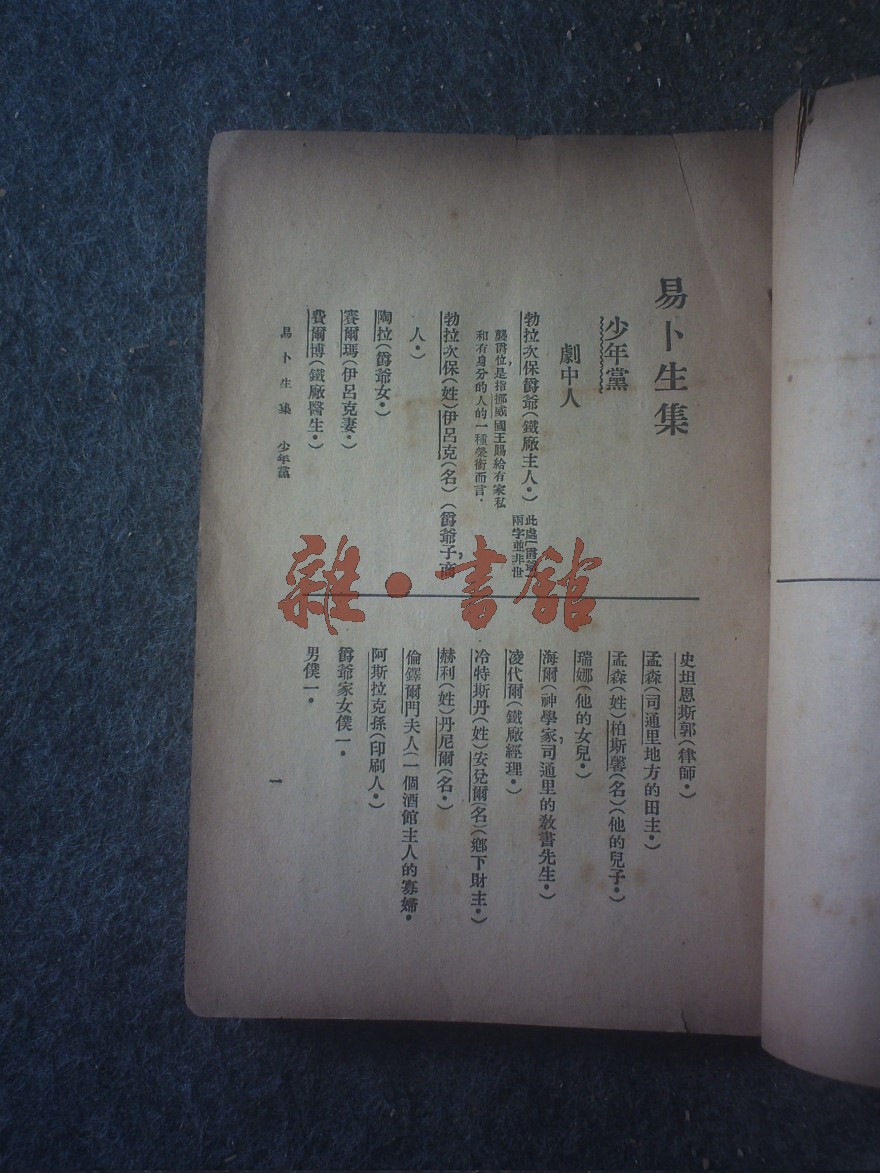 易卜生集
少年黨
劇中人
勃拉次保爵爺(鐵廠主人。)此處「爵爺」
兩字並非世
襲爵位,是指挪威國王賜給有家私
和有身分的人的一種榮銜而言.
勃拉次保(姓)伊呂克(名)(爵爺子,商
人。)
陶拉(爵爺女。)
賽爾瑪(伊呂克妻。)
費爾博(鐵廠醫生。)
易卜生集 少年黨
史坦恩斯郭(律師。)
孟森(司通里地方的田主。)
孟森(姓)柏斯馨(名)(他的兒子。)
瑞娜(他的女兒。)
海爾(神學家,司通里的教書先生。)
凌代爾(鐵廠經理。)
冷特斯丹(姓)安兌爾(名)(鄉下財主。)
赫利(姓)丹尼爾(名。)
倫鐸爾門夫人(一個酒館主人的寡婦。
阿斯拉克孫(印刷人。)
爵爺家女僕一。
男僕一。
一
雜·書館